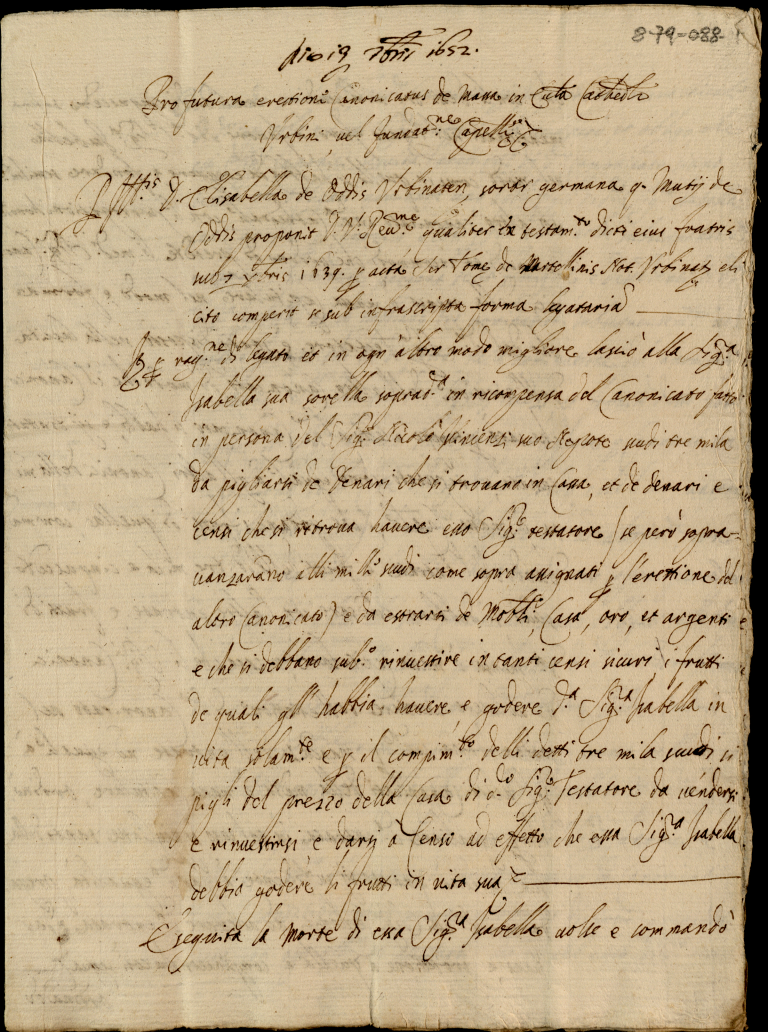 8-79-088-
die 19 Xbris 1652.
Pro futura erectione Canonicatus de Massa in Cath
Urbini, vel fundat.ne Capellę &c
D. Elisabella de Oddis Urbinaten, soror germana q. Mutij de
Oddis proponit D. V. Reu.me qualiter in testam.to dicti eius fratris
1639. p acta Ser Tomę de Martellinis Not. Urbinat; eli
cito comperit se sub infrascripta forma legataria
E p rag.ne di legato et in ogn'altro modo migliore lasciò alla Sig.a
Isabella sua sorella soprad.a in ricompensa del Canonicato fatto
in persona del Sig. Nicolò Vincenzi suo Nepote scudi tre mila
da pigliarsi de Denari che si trovano in Casa, et de denari e
censi che si ritrova havere esso Sig.e testatore (se però sopra-
vanzarano alli mille scudi come sopra assignati p l'erettione del
altro Canonicato) e da estrarsi de Mobili, Casa, oro, et argenti
e che si debbano sub.o rinvestire in tanti censi sicuri i frutti
de quali gll' habbia, havere, e godere d.a Sig.a Isabella in
vita solam.te e p il compim.to delli detti tre mila scudi si
pigli del prezzo della Casa di d.o Sig.e Testatore da vendersi
e rinvestirsi, e darsi a Censo ad effetto che essa Sig.a Isabella
debbia godere li frutti in vita sua
E seguita la morte di essa Sig.a Isabella volse e commandò